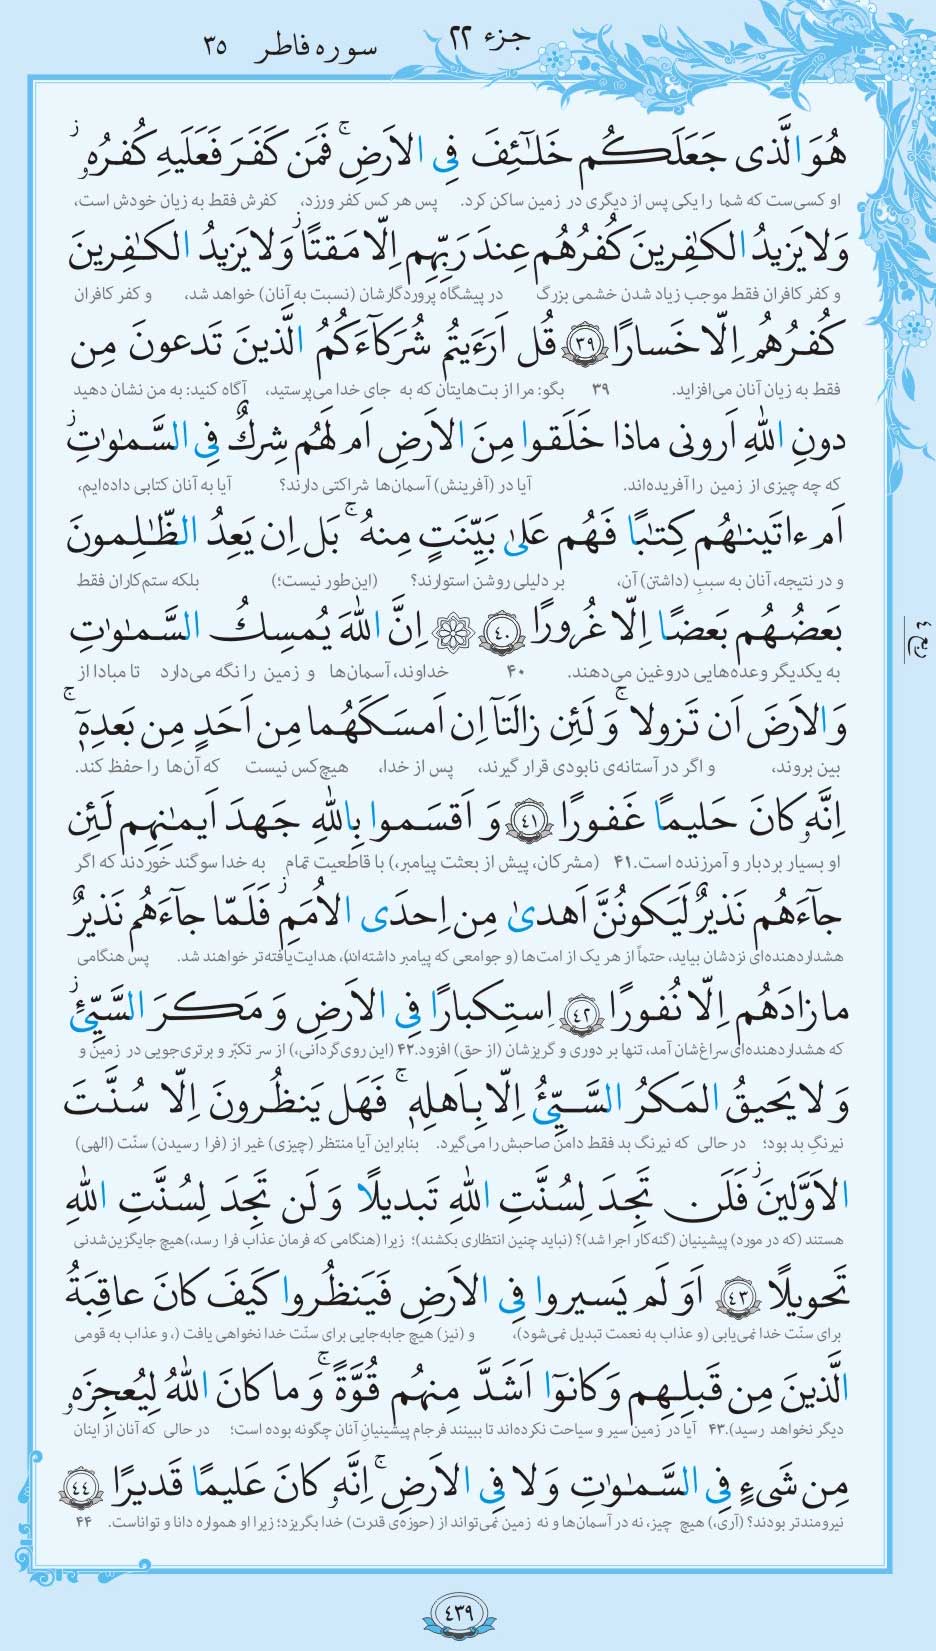 جزء ۲۲
سوره فاطر ۳۵
هُوَ الَّذی جَعَلَكُم خَلٰـٓئِفَ فِی الاَرضِ ۚ فَمَن كَفَرَ فَعَلَیهِ كُفرُهٗ ۖ
او کسی‌ست که شما را یکی پس از دیگری در زمین ساکن کرد. پس هر کس کفر ورزد، کفرش فقط به زیان خودش است،
وَ لا یَزیدُ الكٰفِرینَ كُفرُهُم عِندَ رَبِّهِم اِلّا مَقتًا ۖ وَ لا یَزیدُ الكٰفِرینَ
و کفر کافران فقط موجب زیاد شدن خشمی بزرگ در پیشگاه پروردگارشان (نسبت به آنان) خواهد شد، و کفر کافران
كُفرُهُم اِلّا خَسارًا ﴿۳۹﴾ قُل اَرَءَیتُم شُرَكآءَكُمُ الَّذینَ تَدعونَ مِن
فقط به زیان آنان می‌افزاید. ۳۹ بگو: مرا از بت‌هایتان که به جای خدا می‌پرستید، آگاه کنید: به من نشان دهید
دونِ اللّٰهِ اَرونی ماذا خَلَقوا مِنَ الاَرضِ اَم لَهُم شِركٌ فِی السَّمٰوٰتِ ۖ
که چه چیزی از زمین را آفریده‌اند. آیا در (آفرینش) آسمان‌ها شراکتی دارند؟ آیا به آنان کتابی داده‌ایم،
اَم ءاتَینٰهُم كِتٰبًا فَهُم عَلیٰ بَیِّنَتٍ مِنهُ ۚ بَل اِن یَعِدُ الظّٰلِمونَ
و در نتیجه، آنان به سببِ (داشتن) آن، بر دلیلی روشن استوارند؟ (این‌طور نیست؛) بلکه ستم‌کاران فقط
بَعضُهُم بَعضًا اِلّا غُرورًا ﴿۴۰﴾ اِنَّ اللّٰهَ یُمسِكُ السَّمٰوٰتِ
به یکدیگر وعده‌هایی دروغین می‌دهند. ۴۰ خداوند، آسمان‌ها و زمین را نگه می‌دارد تا مبادا از
ربع ٤
وَالاَرضَ اَن تَزولا ۚ وَ لَئِن زالَتآ اِن اَمسَكَهُما مِن اَحَدٍ مِن بَعدِهٖٓ ۚ
بین بروند، و اگر در آستانه‌ی نابودی قرار گیرند، پس از خدا، هیچ‌کس نیست که آن‌ها را حفظ کند.
اِنَّهٗ كانَ حَلیمًا غَفورًا ﴿۴۱﴾ وَ اَقسَموا بِاللّٰهِ جَهدَ اَیمٰنِهِم لَئِن
او بسیار بردبار و آمرزنده است.۴۱ (مشرکان، پیش از بعثت پیامبر،) با قاطعیت تمام به خدا سوگند خوردند که اگر
جآءَهُم نَذیرٌ لَیَكونُنَّ اَهدیٰ مِن اِحدَی الاُمَمِ ۖ فَلَمّا جآءَهُم نَذیرٌ
هشداردهنده‌ای نزدشان بیاید، حتماً از هر یک از امت‌ها (و جوامعی که پیامبر داشته‌اند)، هدایت‌یافته‌تر خواهند شد. پس هنگامی
ما زادَهُم اِلّا نُفورًا ﴿۴۲﴾ اِستِكبارًا فِی الاَرضِ وَ مَكرَ السَّیِّئِ ۚ
که هشداردهنده‌ای سراغ‌شان آمد، تنها بر دوری و گریزشان (از حق) افزود.۴۲ (این روی‌گردانی،) از سر تکبّر و برتری‌جویی در زمین و
وَ لا یَحیقُ المَكرُ السَّیِّئُ اِلّا بِاَهلِهٖ ۚ فَهَل یَنظُرونَ اِلّا سُنَّتَ
نیرنگ بد بود؛ در حالی که نیرنگ بد فقط دامن صاحبش را می‌گیرد. بنابراین آیا منتظر (چیزی) غیر از (فرا رسیدن) سنّت (الهی)
الاَوَّلینَ ۚ فَلَن تَجِدَ لِسُنَّتِ اللّٰهِ تَبدیلًا ۖ وَ لَن تَجِدَ لِسُنَّتِ اللّٰهِ
هستند (که در مورد) پیشینیان (گنه‌کار اجرا شد)؟ (نباید چنین انتظاری بکشند)؛ زیرا (هنگامی که فرمان عذاب فرا رسد،) هیچ جایگزین‌شدنی
تَحویلًا ﴿۴۳﴾ اَوَ لَم یَسیروا فِی الاَرضِ فَیَنظُروا كَیفَ كانَ عاقِبَةُ
برای سنّت خدا نمی‌یابی (و عذاب به نعمت تبدیل نمی‌شود)، و (نیز) هیچ جابه‌جایی برای سنّت خدا نخواهی یافت (، و عذاب به قومی
الَّذینَ مِن قَبلِهِم وَ كانوٓا اَشَدَّ مِنهُم قُوَّةً ۚ وَ ما كانَ اللّٰهُ لِیُعجِزَهٗ
دیگر نخواهد رسید).۴۳ آیا در زمین سیر و سیاحت نکرده‌اند تا ببینند فرجام پیشینیان آنان چگونه بوده است؛ در حالی که آنان از اینان
مِن شَیءٍ فِی السَّمٰوٰتِ وَ لا فِی الاَرضِ ۚ اِنَّهٗ كانَ عَلیمًا قَدیرًا ﴿۴۴﴾
نیرومندتر بودند؟ (آری،) هیچ چیز، نه در آسمان‌ها و نه زمین نمی‌تواند از (حوزه‌ی قدرت) خدا بگریزد؛ زیرا او همواره دانا و تواناست. ۴۴
٤٣٩